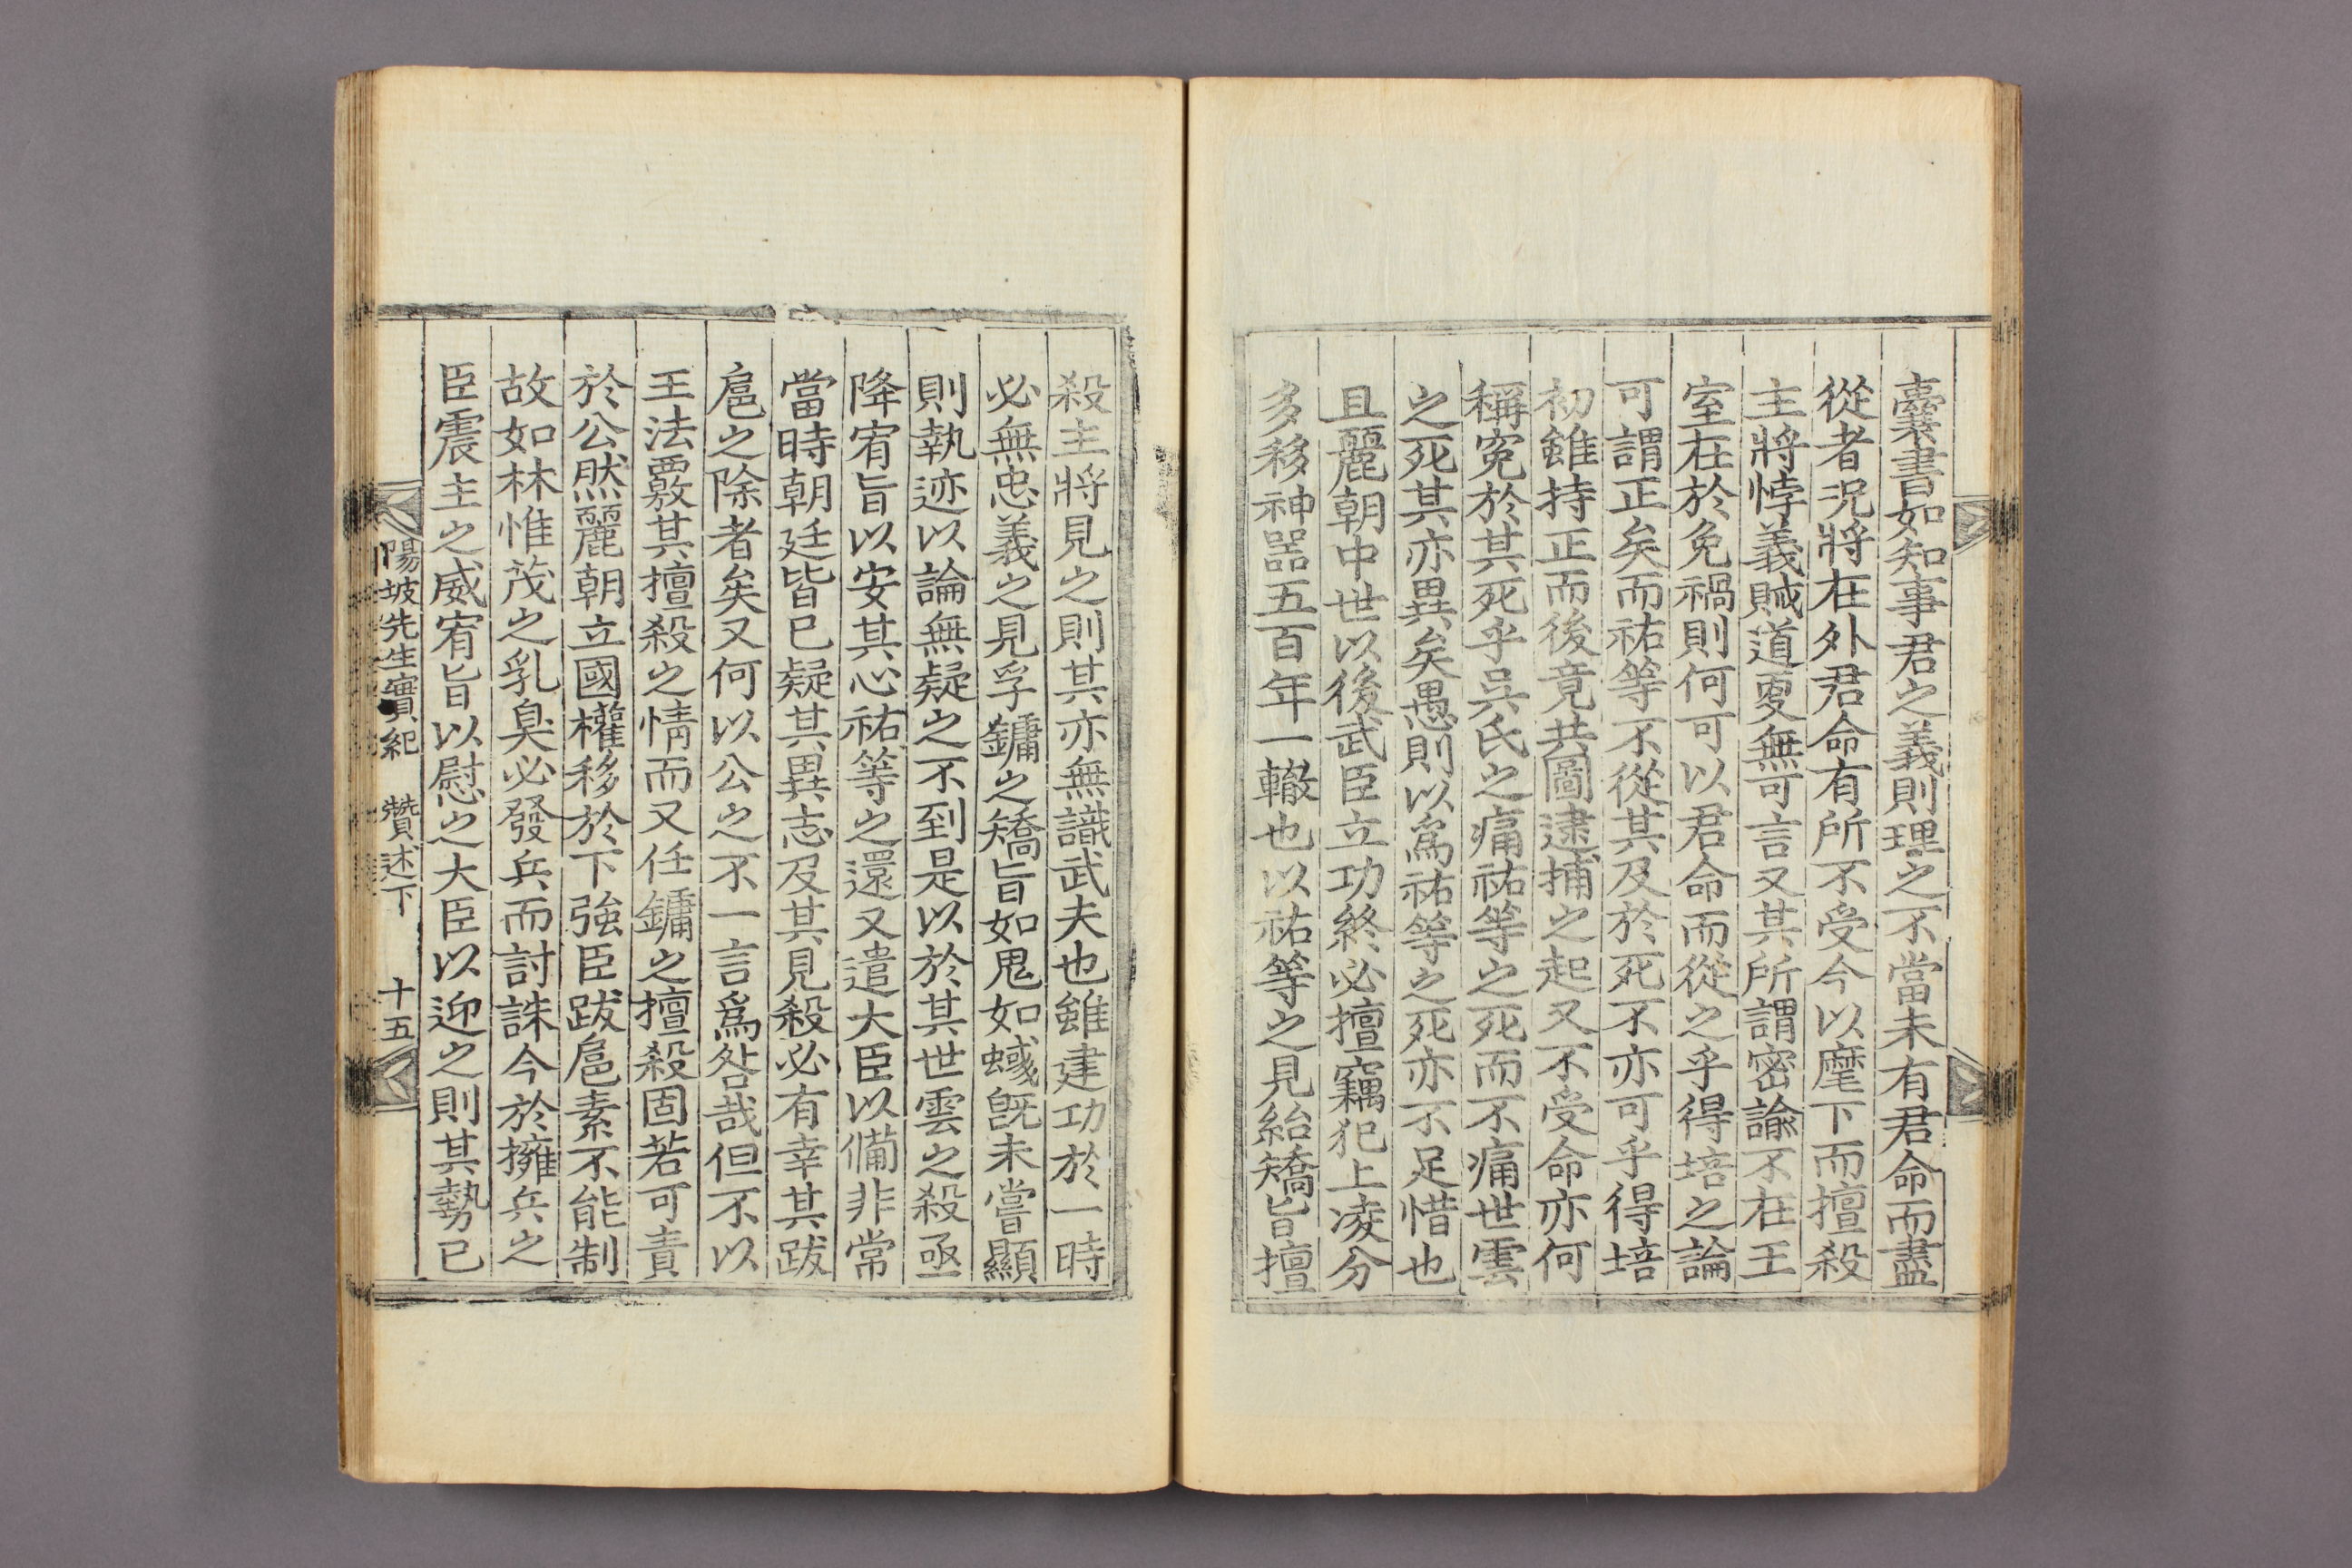 橐書如知事君之義則理之不當未有君命而盡
從者況將在外君命有所不受今以麾下而擅殺
主將悖義賊道更無可言又其所謂密諭不在王
室在於免禍則何可以君命而從之乎得培之論
可謂正矣而祐等不從其及於死不亦可乎得培
初雖持正而後竟共圖逮捕之起又不受命亦何
稱冤於其死乎吳氏之痛祐等之死而不痛世雲
之死其亦異矣愚則以爲祐等之死亦不足惜也
且麗朝中世以後武臣立功終必擅竊犯上凌分
多移神器五百年一轍也以祐等之見紿矯旨擅
殺主將見之則其亦無識武夫也雖建功於一時
必無忠義之見孚鏞之矯旨如鬼如蜮旣未嘗顯
則執迹以論無疑之不到是以於其世雲之殺亟
降宥旨以安其心祐等之還又遣大臣以備非常
當時朝廷皆已疑其異志及其見殺必有幸其跋
扈之除者矣又何以公之不一言爲咎哉但不以
王法覈其擅殺之情而又任鏞之擅殺固若可責
於公然麗朝立國權移於下強臣跋扈素不能制
故如林惟茂之乳臭必發兵而討誅今於擁兵之
臣震主之威宥旨以慰之大臣以迎之則其勢已
陽坡先生實紀 贊述下 十五